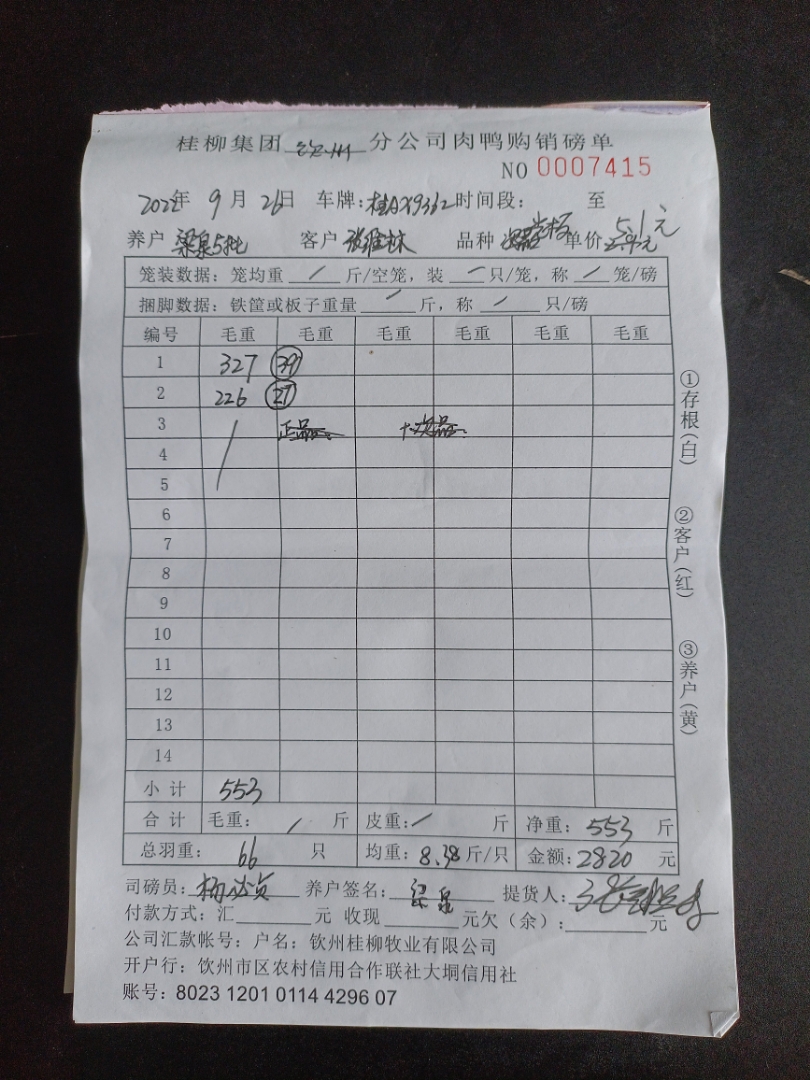 桂柳集团 钦州 分公司肉鸭购销磅单
NO 0007415
2022年 9月 26日 车牌:桂AX9362 时间段: 至
养户 梁泉5批 客户 张维林 品种 单价 5.1元
笼装数据: 笼均重 / 斤/空笼, 装 / 只/笼, 称 / 笼/磅
捆脚数据: 铁筐或板子重量 / 斤, 称 / 只/磅
编号 毛重 毛重 毛重 毛重 毛重 毛重
1 327 39
2 226 27
3 / 正品 次品
4
5
6
7
8
9
10
11
12
13
14
小计 553
合计 毛重: / 斤 皮重: / 斤 净重: 553 斤
总羽重: 66 只 均重: 8.38 斤/只 金额: 2820 元
司磅员: 养户签名: 梁泉 提货人:
付款方式: 汇 元 收现 元欠(余): 元
公司汇款帐号: 户名: 钦州桂柳牧业有限公司
开户行: 钦州市区农村信用合作联社大垌信用社
账号: 8023 1201 0114 4296 07
①存根(白)
②客户(红)
③养户(黄)